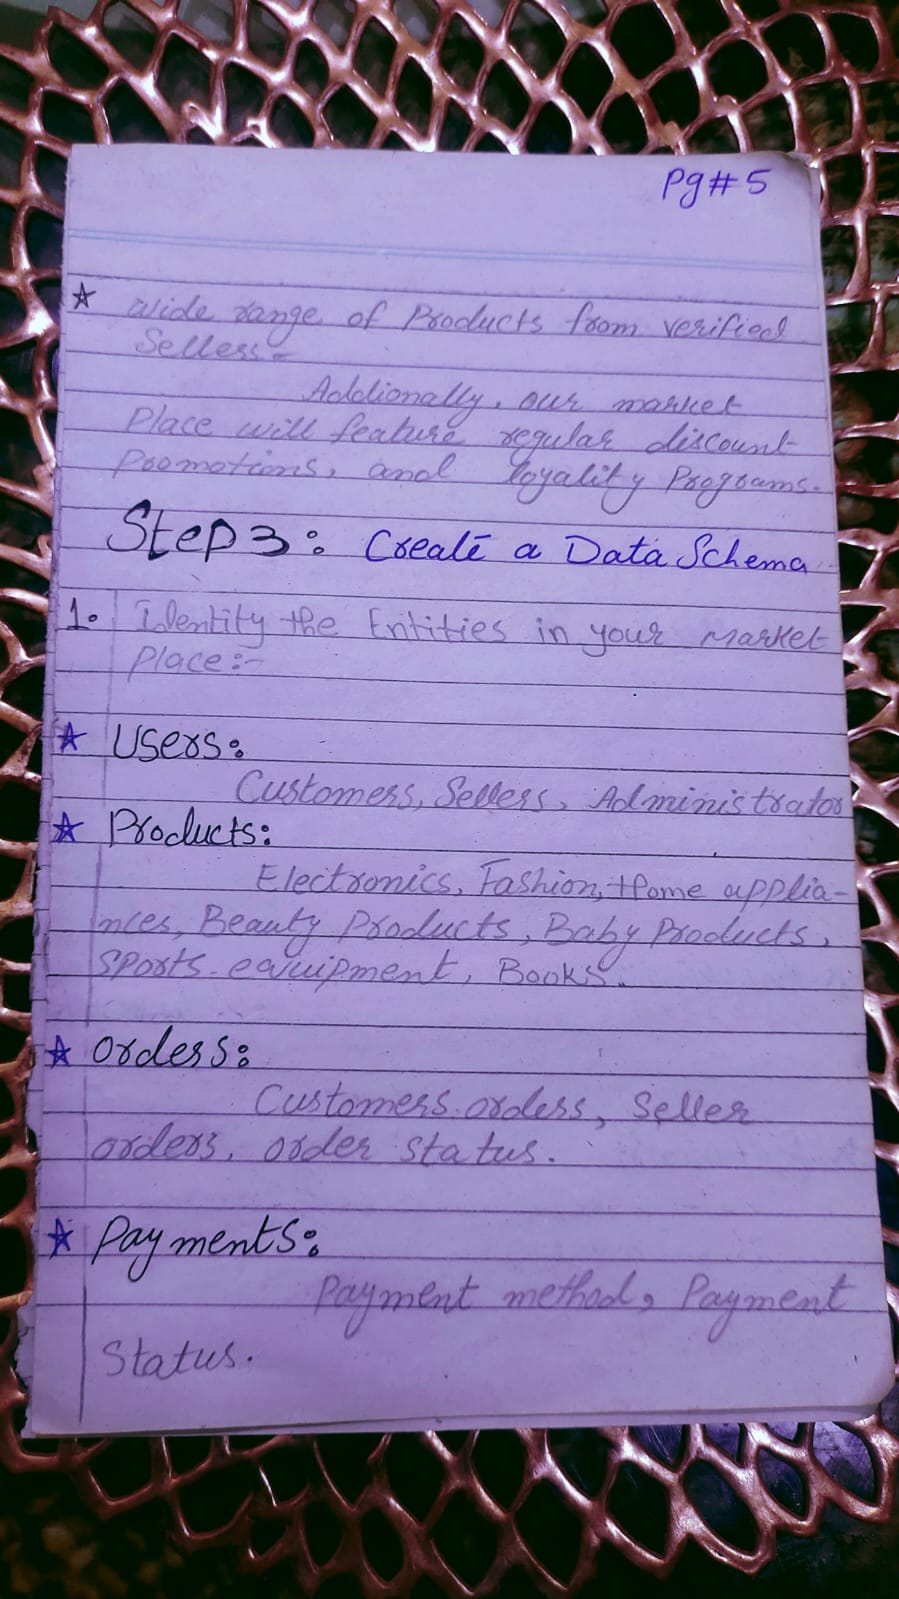 Pg#5
☆ wide range of Products from verified
Sellers-
Addionally, our market
Place will feature regular discount
Promotions, and loyality Programs.
Step 3: Create a Data Schema
1. Identity the Entities in your Market
Place:-
☆ Users:
Customers, Sellers, Administrator
☆ Products:
Electronics, Fashion, Home applia-
nces, Beauty Products, Baby Products,
Sports equipment, Books.
☆ Orders:
Customers orders, Seller
orders, order status.
☆ Payments:
Payment method, Payment
Status.